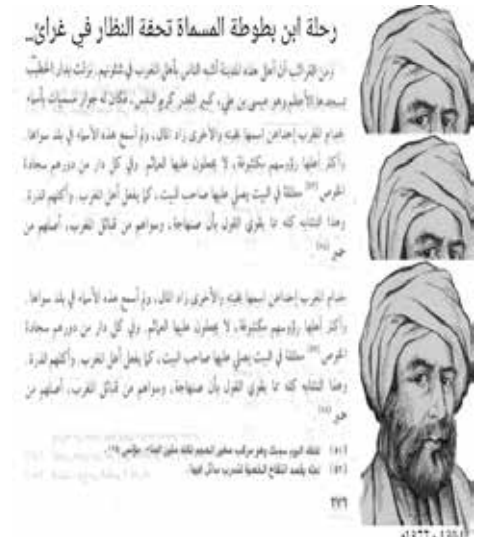 رحلة ابن بطوطة المسماة تحفة النظار في غرائ...
ومن الغرائب أن أهل هذه المدينة أشبه الناس بأهل المغرب في شئونهم. نزلت بدار الخطيب
بمسجدها الأعظم وهو عيسى بن علي، كبير القدر كريم النفس، فكان له جوار مسميات بأسماء
خدام المغرب إحداهن اسمها بخيته والأخرى زاد المال، ولم أسمع هذه الأسماء في بلد سواها.
وأكثر أهلها رؤوسهم مكشوفة، لا يجعلون عليها العمائم. وفي كل دار من دورهم سجادة
الخوص معلقة في البيت يصلي عليها صاحب البيت، كما يفعل أهل المغرب. وأكلهم الذرة.
وهذا التشابه كله مما يقوي القول بأن صنهاجة، وسواهم من قبائل المغرب، أصلهم من
حمير
خدام المغرب إحداهن اسمها بخيته والأخرى زاد المال، ولم أسمع هذه الأسماء في بلد سواها.
وأكثر أهلها رؤوسهم مكشوفة، لا يجعلون عليها العمائم. وفي كل دار من دورهم سجادة
الخوص معلقة في البيت يصلي عليها صاحب البيت، كما يفعل أهل المغرب. وأكلهم الذرة.
وهذا التشابه كله مما يقوي القول بأن صنهاجة، وسواهم من قبائل المغرب، أصلهم من
حمير
٢٧٦